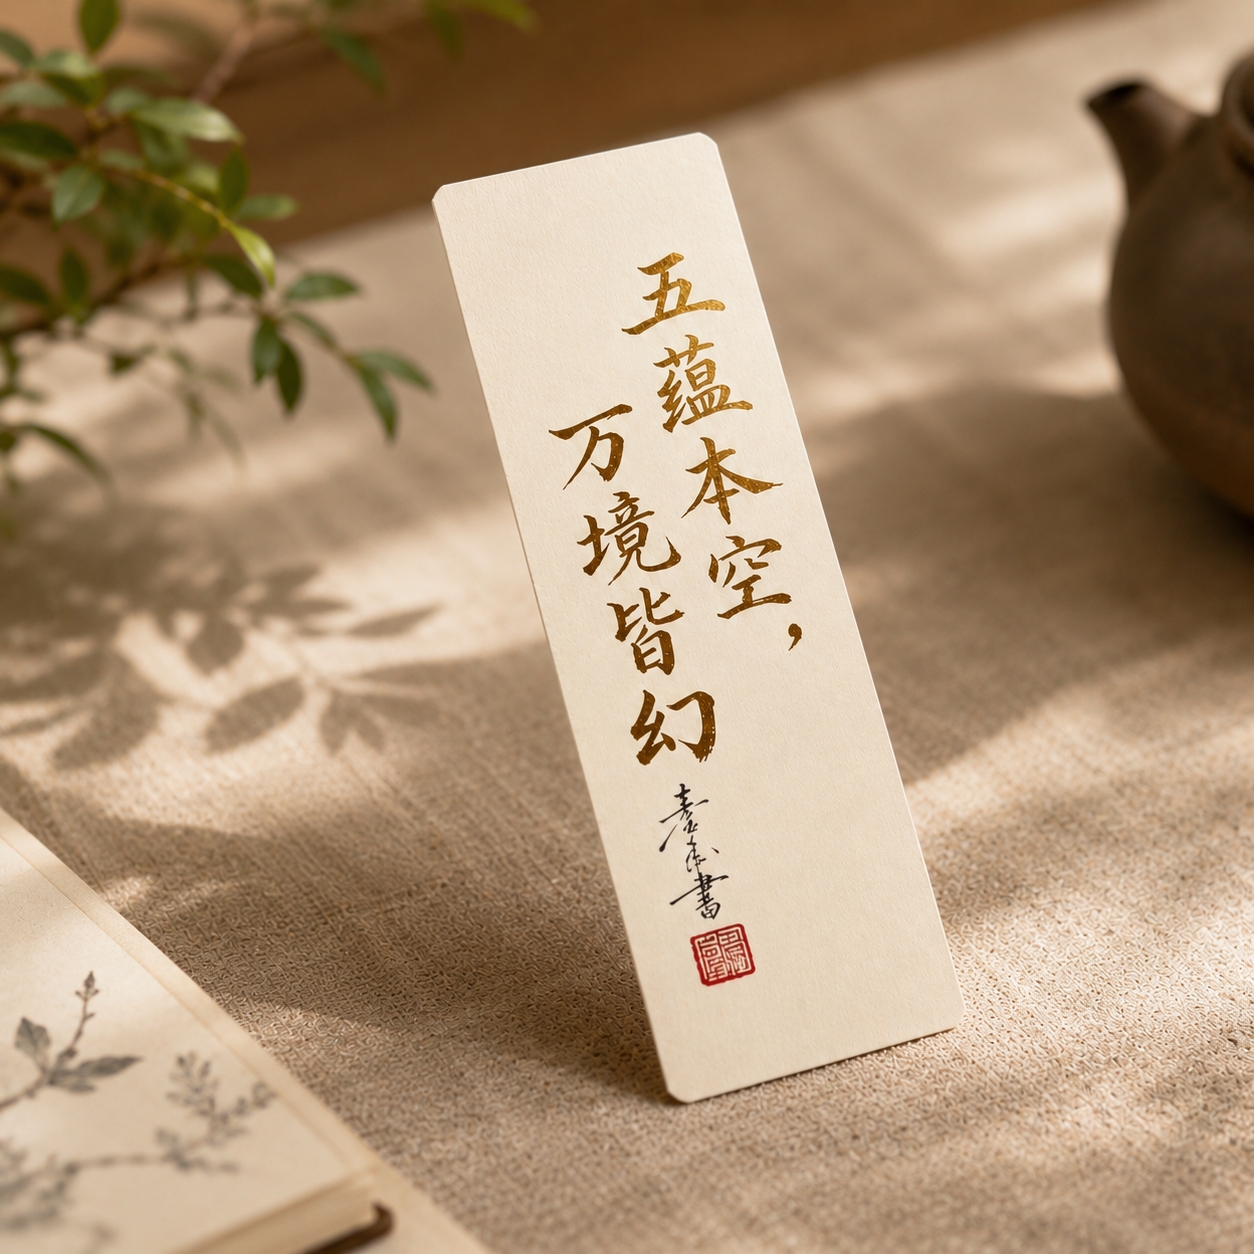 五蕴本空，
万境皆幻
書